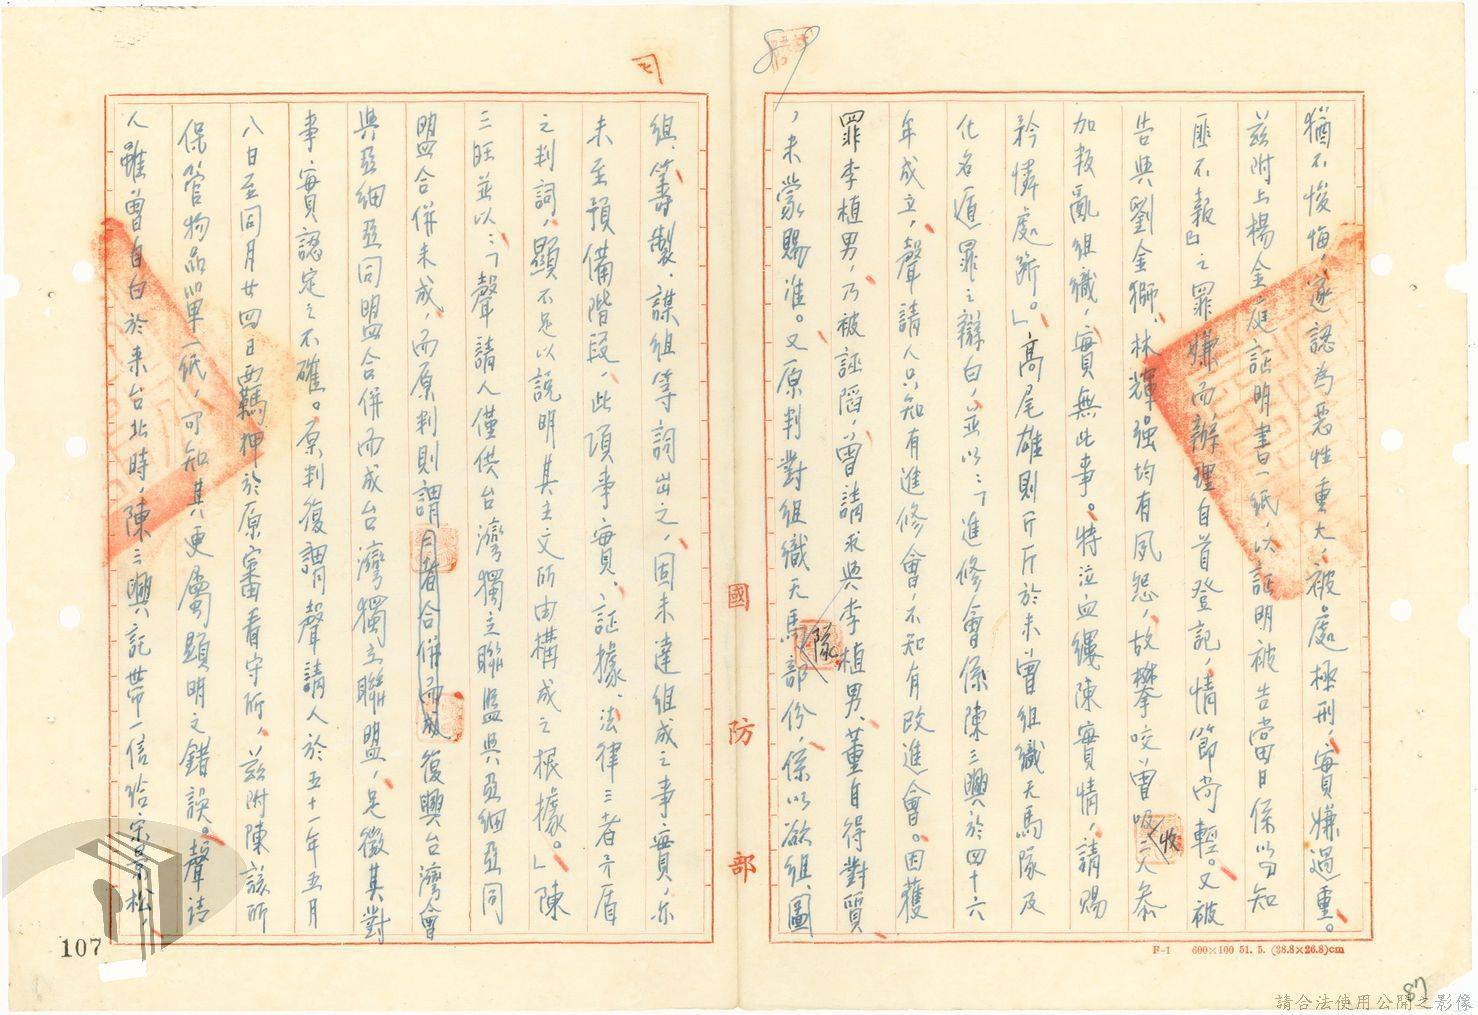 猶不悛悔，遂認為惡性重大，被處極刑，實嫌過重。
茲附上楊金庭証明書一紙，以証明被告當日係以「知
匪不報」之罪嫌而辦理自首登記，情節尚輕。又被
告與劉金獅、林輝强均有夙怨，故攀咬曾吸收二人參
加叛亂組織，實無此事。特泣血縷陳實情，請賜
矜憐處斷。」高尾雄則斤斤於未曾組織天馬隊及
化名遁罪之辯白，並以：「進修會係陳三興於四十六
年成立，聲請人只知有進修會，不知有改進會。因獲
罪李植男，乃被誣蹈，曾請求與李植男、董自得對質
，未蒙賜准。又原判對組織天馬隊部份，係以欲組、圖
組、籌製、謀組等詞出之，固未達組成之事實，亦
未至預備階段，此項事實、証據、法律三者矛盾
之判詞，顯不足以說明其主文所由構成之根據。」陳
三旺並以：「聲請人僅供台灣獨立聯盟與亞細亞同
盟合併未成，而原判則謂復興台灣會
與亞細亞同盟合併而成台灣獨立聯盟，足徵其對
事實認定之不確。原判復謂聲請人於五十一年五月
八日至同月廿四日兩羈押於原審看守所，茲附陳該所
保管物品單一紙，可知其更屬顯明之錯誤。聲請
人雖曾自白於來台北時，陳三興託帶一信給宋景松，
國防部
107
F-1 600×100 51. 5. (38.8×26.8)cm
87
請合法使用公開之影像